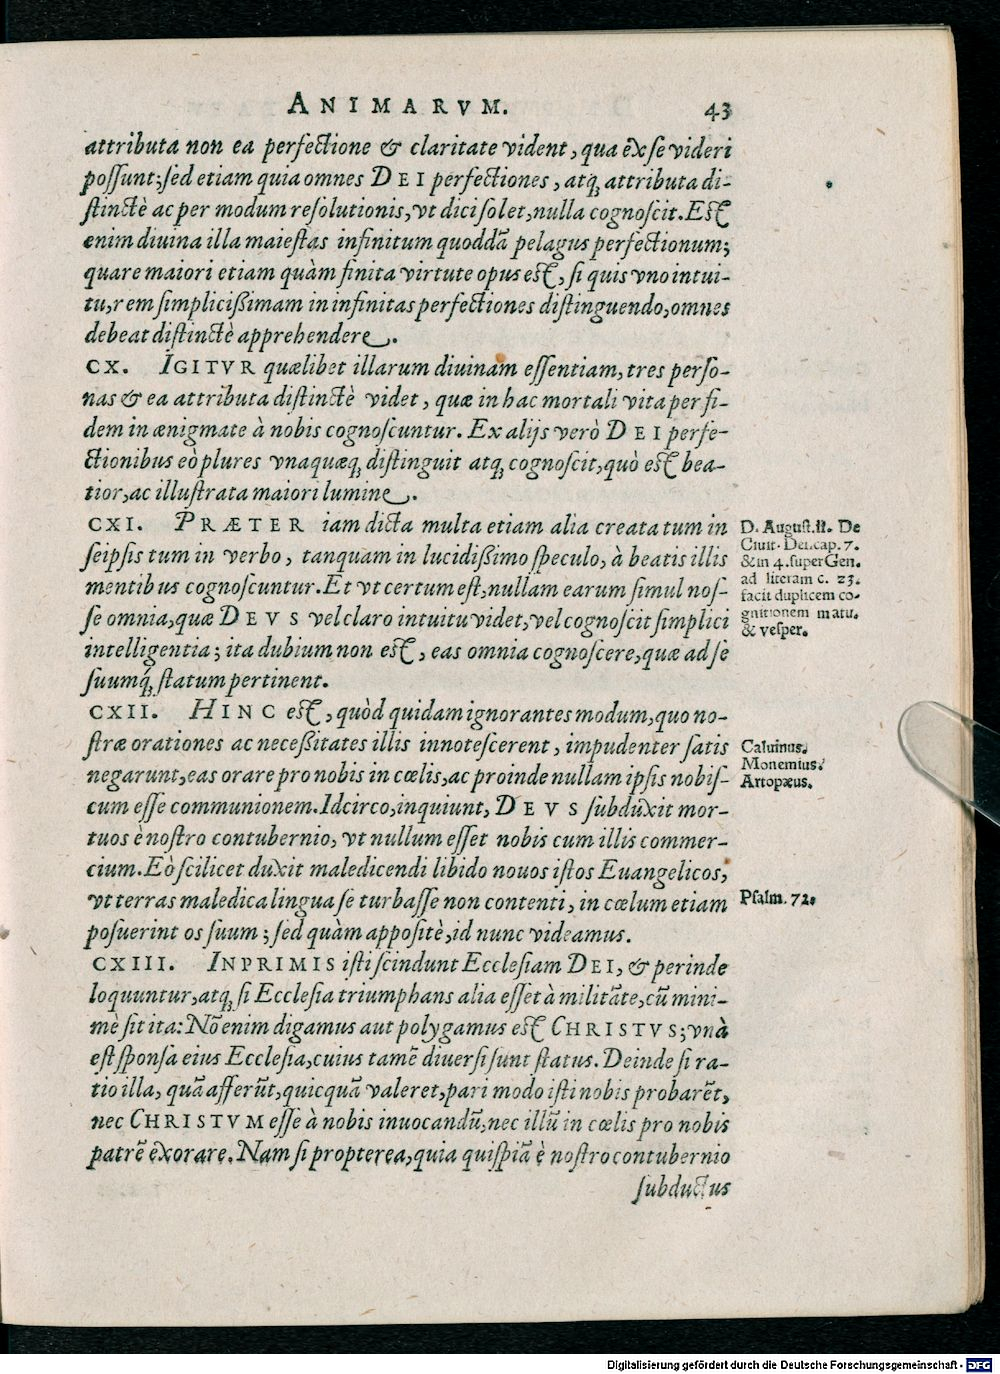 ANIMARVM. 43
attributa non ea perfectione & claritate vident, qua ex se videri
possunt; sed etiam quia omnes DEI perfectiones, atq; attributa di-
stinctè ac per modum resolutionis, vt dici solet, nulla cognoscit. Est
enim diuina illa maiestas infinitum quoddã pelagus perfectionum;
quare maiori etiam quàm finita virtute opus est, si quis vno intui-
tu, rem simplicißimam in infinitas perfectiones distinguendo, omnes
debeat distinctè apprehendere.
CX. IGITVR quælibet illarum diuinam essentiam, tres perso-
nas & ea attributa distinctè videt, quæ in hac mortali vita per fi-
dem in ænigmate à nobis cognoscuntur. Ex alijs verò DEI perfe-
ctionibus eò plures vnaquæq; distinguit atq; cognoscit, quò est bea-
tior, ac illustrata maiori lumine.
CXI. PRÆTER iam dicta multa etiam alia creata tum in
seipsis tum in verbo, tanquam in lucidißimo speculo, à beatis illis
mentibus cognoscuntur. Et vt certum est, nullam earum simul nos-
se omnia, quæ DEVS vel claro intuitu videt, vel cognoscit simplici
intelligentia; ita dubium non est, eas omnia cognoscere, quæ ad se
suumq́; statum pertinent.
D. August. 11. De
Ciuit. Dei. cap. 7.
& in 4. super Gen.
ad literam c. 23.
facit duplicem co-
gnitionem matu.
& vesper.
CXII. HINC est, quòd quidam ignorantes modum, quo no-
stræ orationes ac neceßitates illis innotescerent, impudenter satis
negarunt, eas orare pro nobis in cœlis, ac proinde nullam ipsis nobis-
cum esse communionem. Idcirco, inquiunt, DEVS subduxit mor-
tuos è nostro contubernio, vt nullum esset nobis cum illis commer-
cium. Eò scilicet duxit maledicendi libido nouos istos Euangelicos,
vt terras maledica lingua se turbasse non contenti, in cœlum etiam
posuerint os suum; sed quàm appositè, id nunc videamus.
Caluinus.
Monemius.
Artopæus.
Psalm. 72.
CXIII. INPRIMIS isti scindunt Ecclesiam DEI, & perinde
loquuntur, atq; si Ecclesia triumphans alia esset à militãte, cũ mini-
mè sit ita: Nõ enim digamus aut polygamus est CHRISTVS; vna
est sponsa eius Ecclesia, cuius tamẽ diuersi sunt status. Deinde si ra-
tio illa, quã afferũt, quicquã valeret, pari modo isti nobis probarẽt,
nec CHRISTVM esse à nobis inuocandũ, nec illũ in cœlis pro nobis
patrẽ exorare. Nam si propterea, quia quispiã è nostro contubernio
subductus
Digitalisierung gefördert durch die Deutsche Forschungsgemeinschaft - DFG